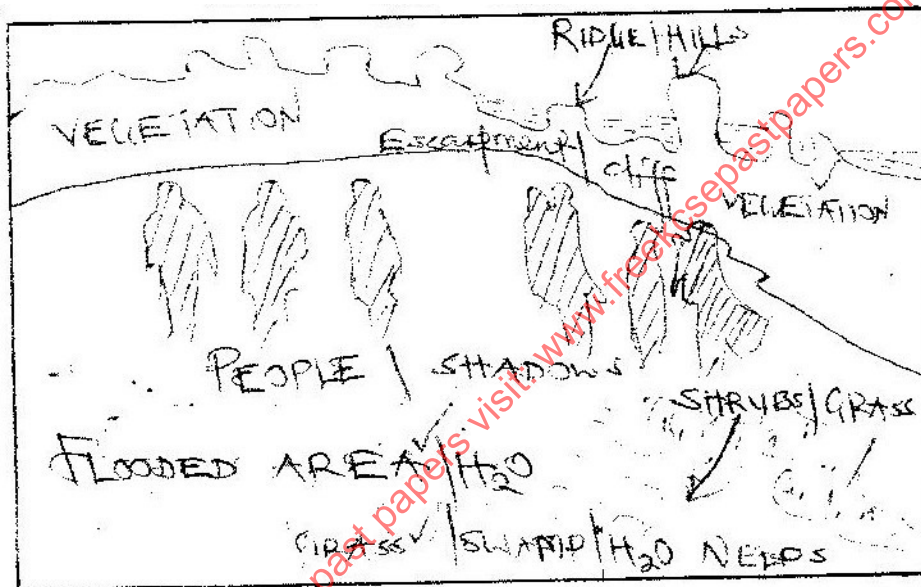 RIDGE/HILLS
VEGETATION
Escarpment/
cliff
VEGETATION
PEOPLE / SHADOWS
SHRUBS/GRASS
FLOODED AREA/H2O
GRASS /SWAMP/H2O
past papers visit: www.freekcsepastpapers.com